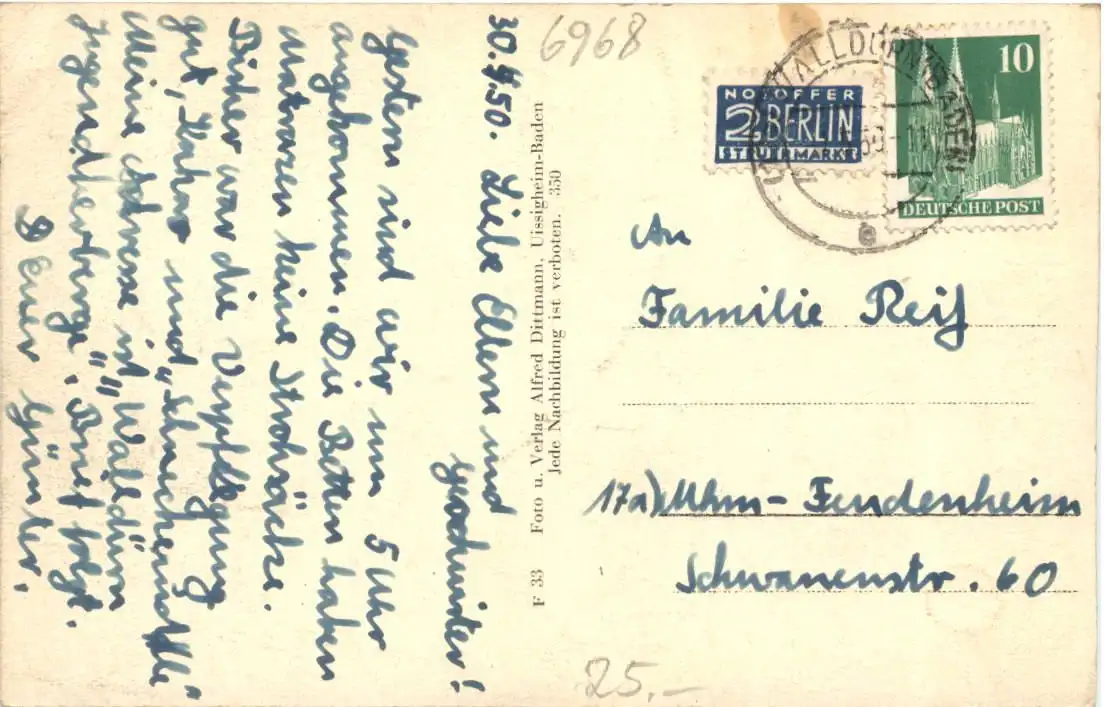 30.4.50. Liebe Eltern und
Geschwister!
Gestern sind wir um 5 Uhr
angekommen. Die Betten haben
Matrazen keine Strohsäcke.
Bisher war die Verpflegung
gut, "Kakao und "
Meine Adresse ist "Walldürn
Jugendherberge". Brief folgt.
Euer Günter.
F 33 Foto u. Verlag Alfred Dittmann, Uissigheim-Baden
Jede Nachbildung ist verboten. 350
6968
NOTOFFER
2 BERLIN
STEUERMARKE
WALLDÜRN (BADEN)
e
10
DEUTSCHE POST
An
Familie Reif
17a) Mhm-Feudenheim
Schwanenstr. 60
25.-